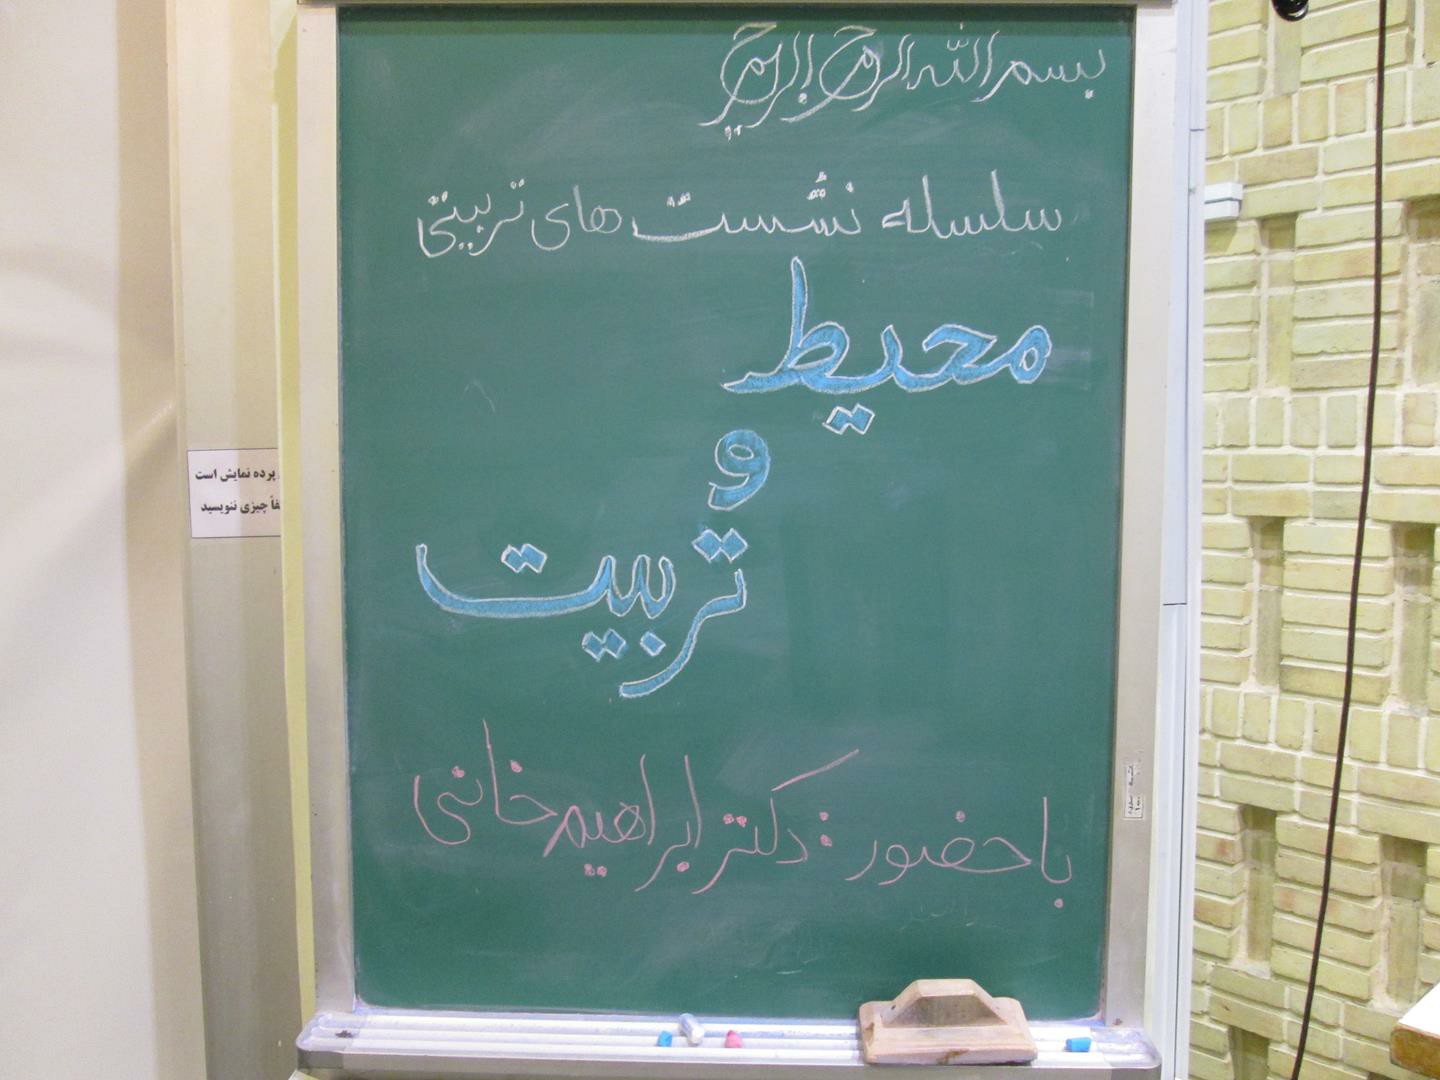 بسم الله الرحمن الرحیم
سلسله نشست های تربیتی
محیط
و
تربیت
با حضور : دکتر ابراهیم خانی
پرده نمایش است
چیزی ننویسید